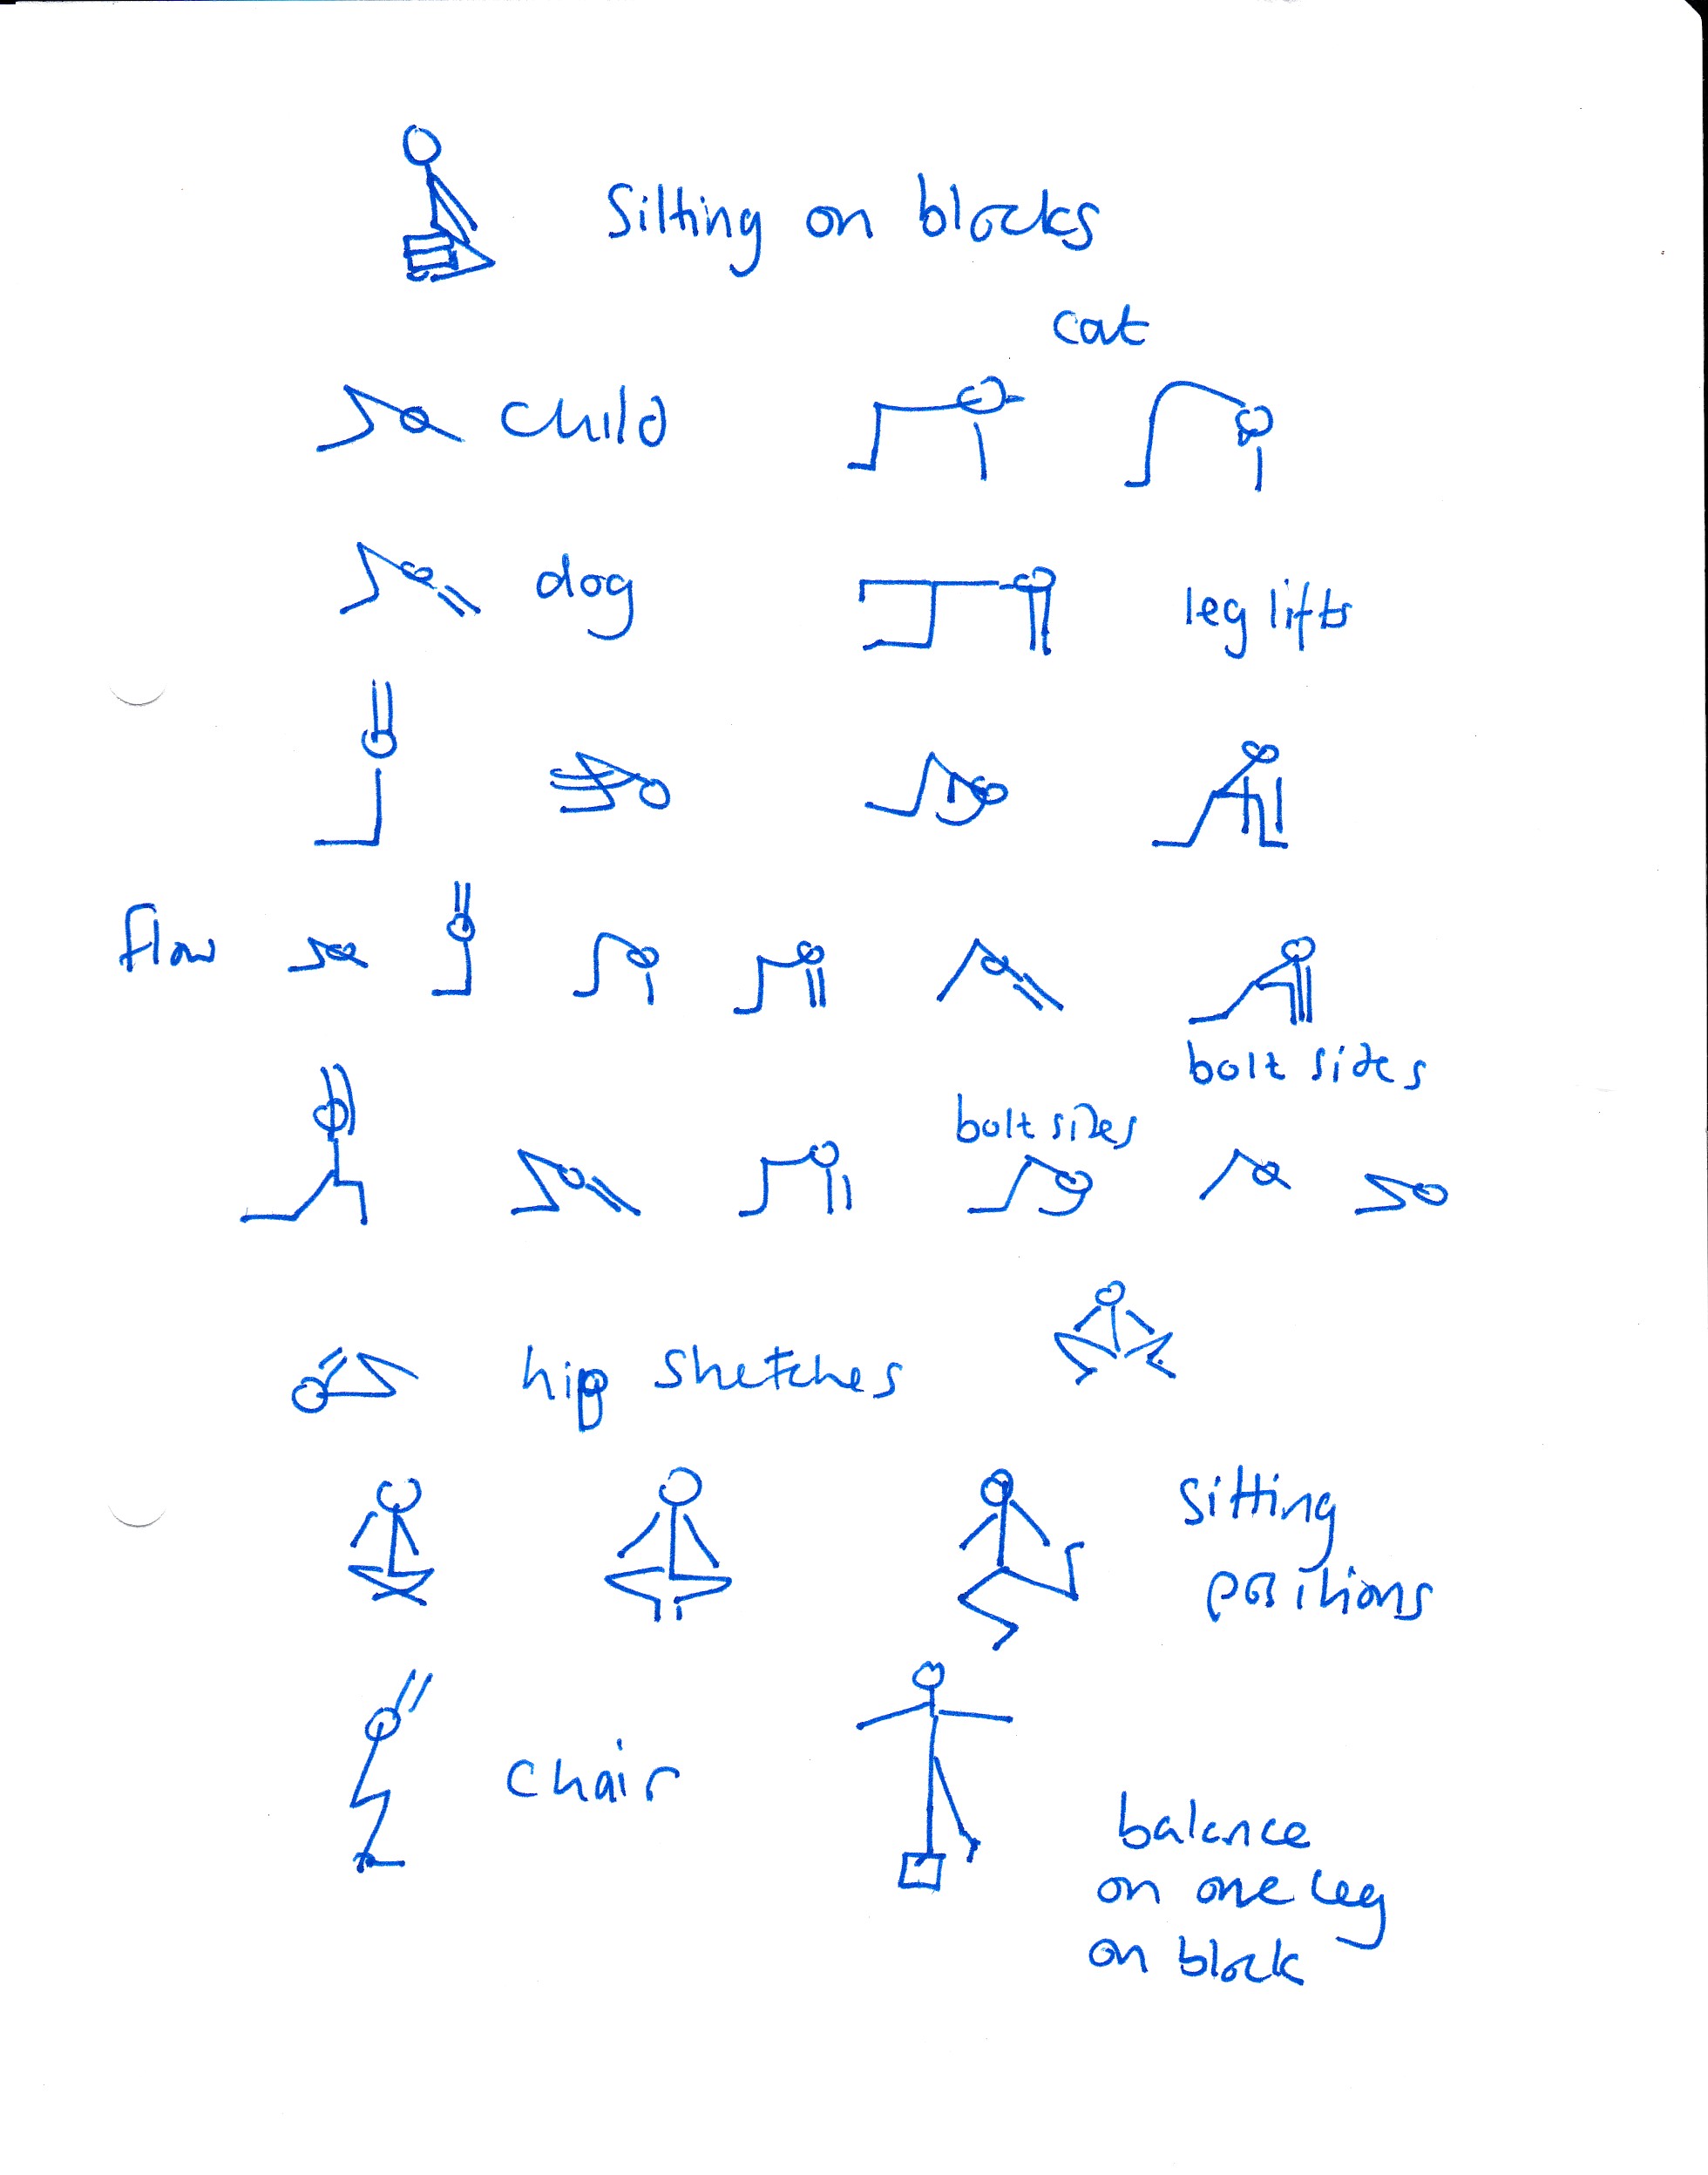 Sitting on blocks
cat
child
dog
leg lifts
flow
bolt sides
bolt sides
hip Stretches
Sitting
positions
chair
balance
on one leg
on block